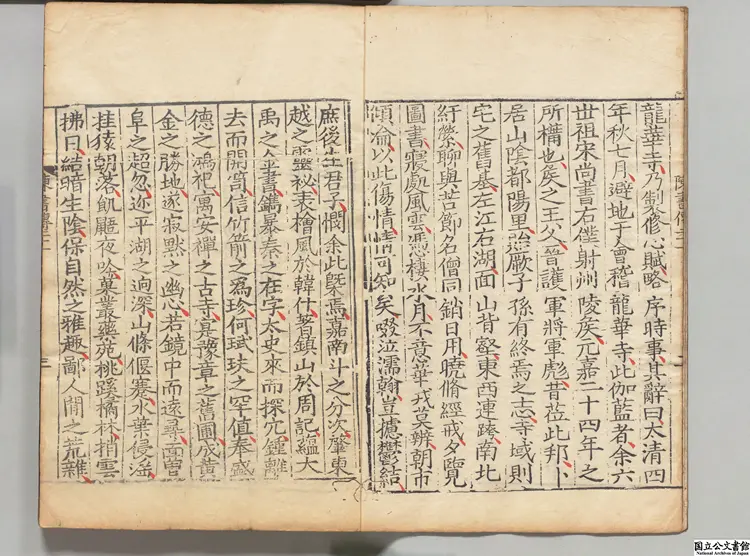 龍華寺乃制脩心賦略序時事其辭曰太清四
年秋七月避地于會稽龍華寺此伽藍者余六
世祖宋尚書右僕射州陵侯元嘉二十四年之
所構也侯之王父晉護軍將軍彪昔莅此邦卜
居山陰都陽里貽厥子孫有終焉之志寺域則
宅之舊基左江右湖面山背壑東西連跨南北
紆縈聊與苦節名僧同銷日用曉脩經戒夕覽
圖書寢處風雲憑棲水月不意華戎莫辨朝市
傾淪以此傷情情可知矣啜泣濡翰豈攄鬱結
庶後生君子憫余此槩焉嘉南斗之分次肇東
越之靈祕表檜風於韓什著鎮山於周記蘊大
禹之金書鐫暴秦之在字太史來而探穴鍾離
去而開筥信竹箭之爲珍何珷玞之罕值奉盛
德之鴻祀寓安禪之古寺寔豫章之舊圃成黃
金之勝地遂寂默之幽心若鏡中而遠尋面曾
阜之超忽迩平湖之迥深山條偃蹇水葉侵淫
挂猿朝落飢鼯夜吟菓叢藥苑桃蹊橘林梢雲
拂日結暗生陰保自然之雅趣鄙人間之荒雜
国立公文書館
National Archives of Japan